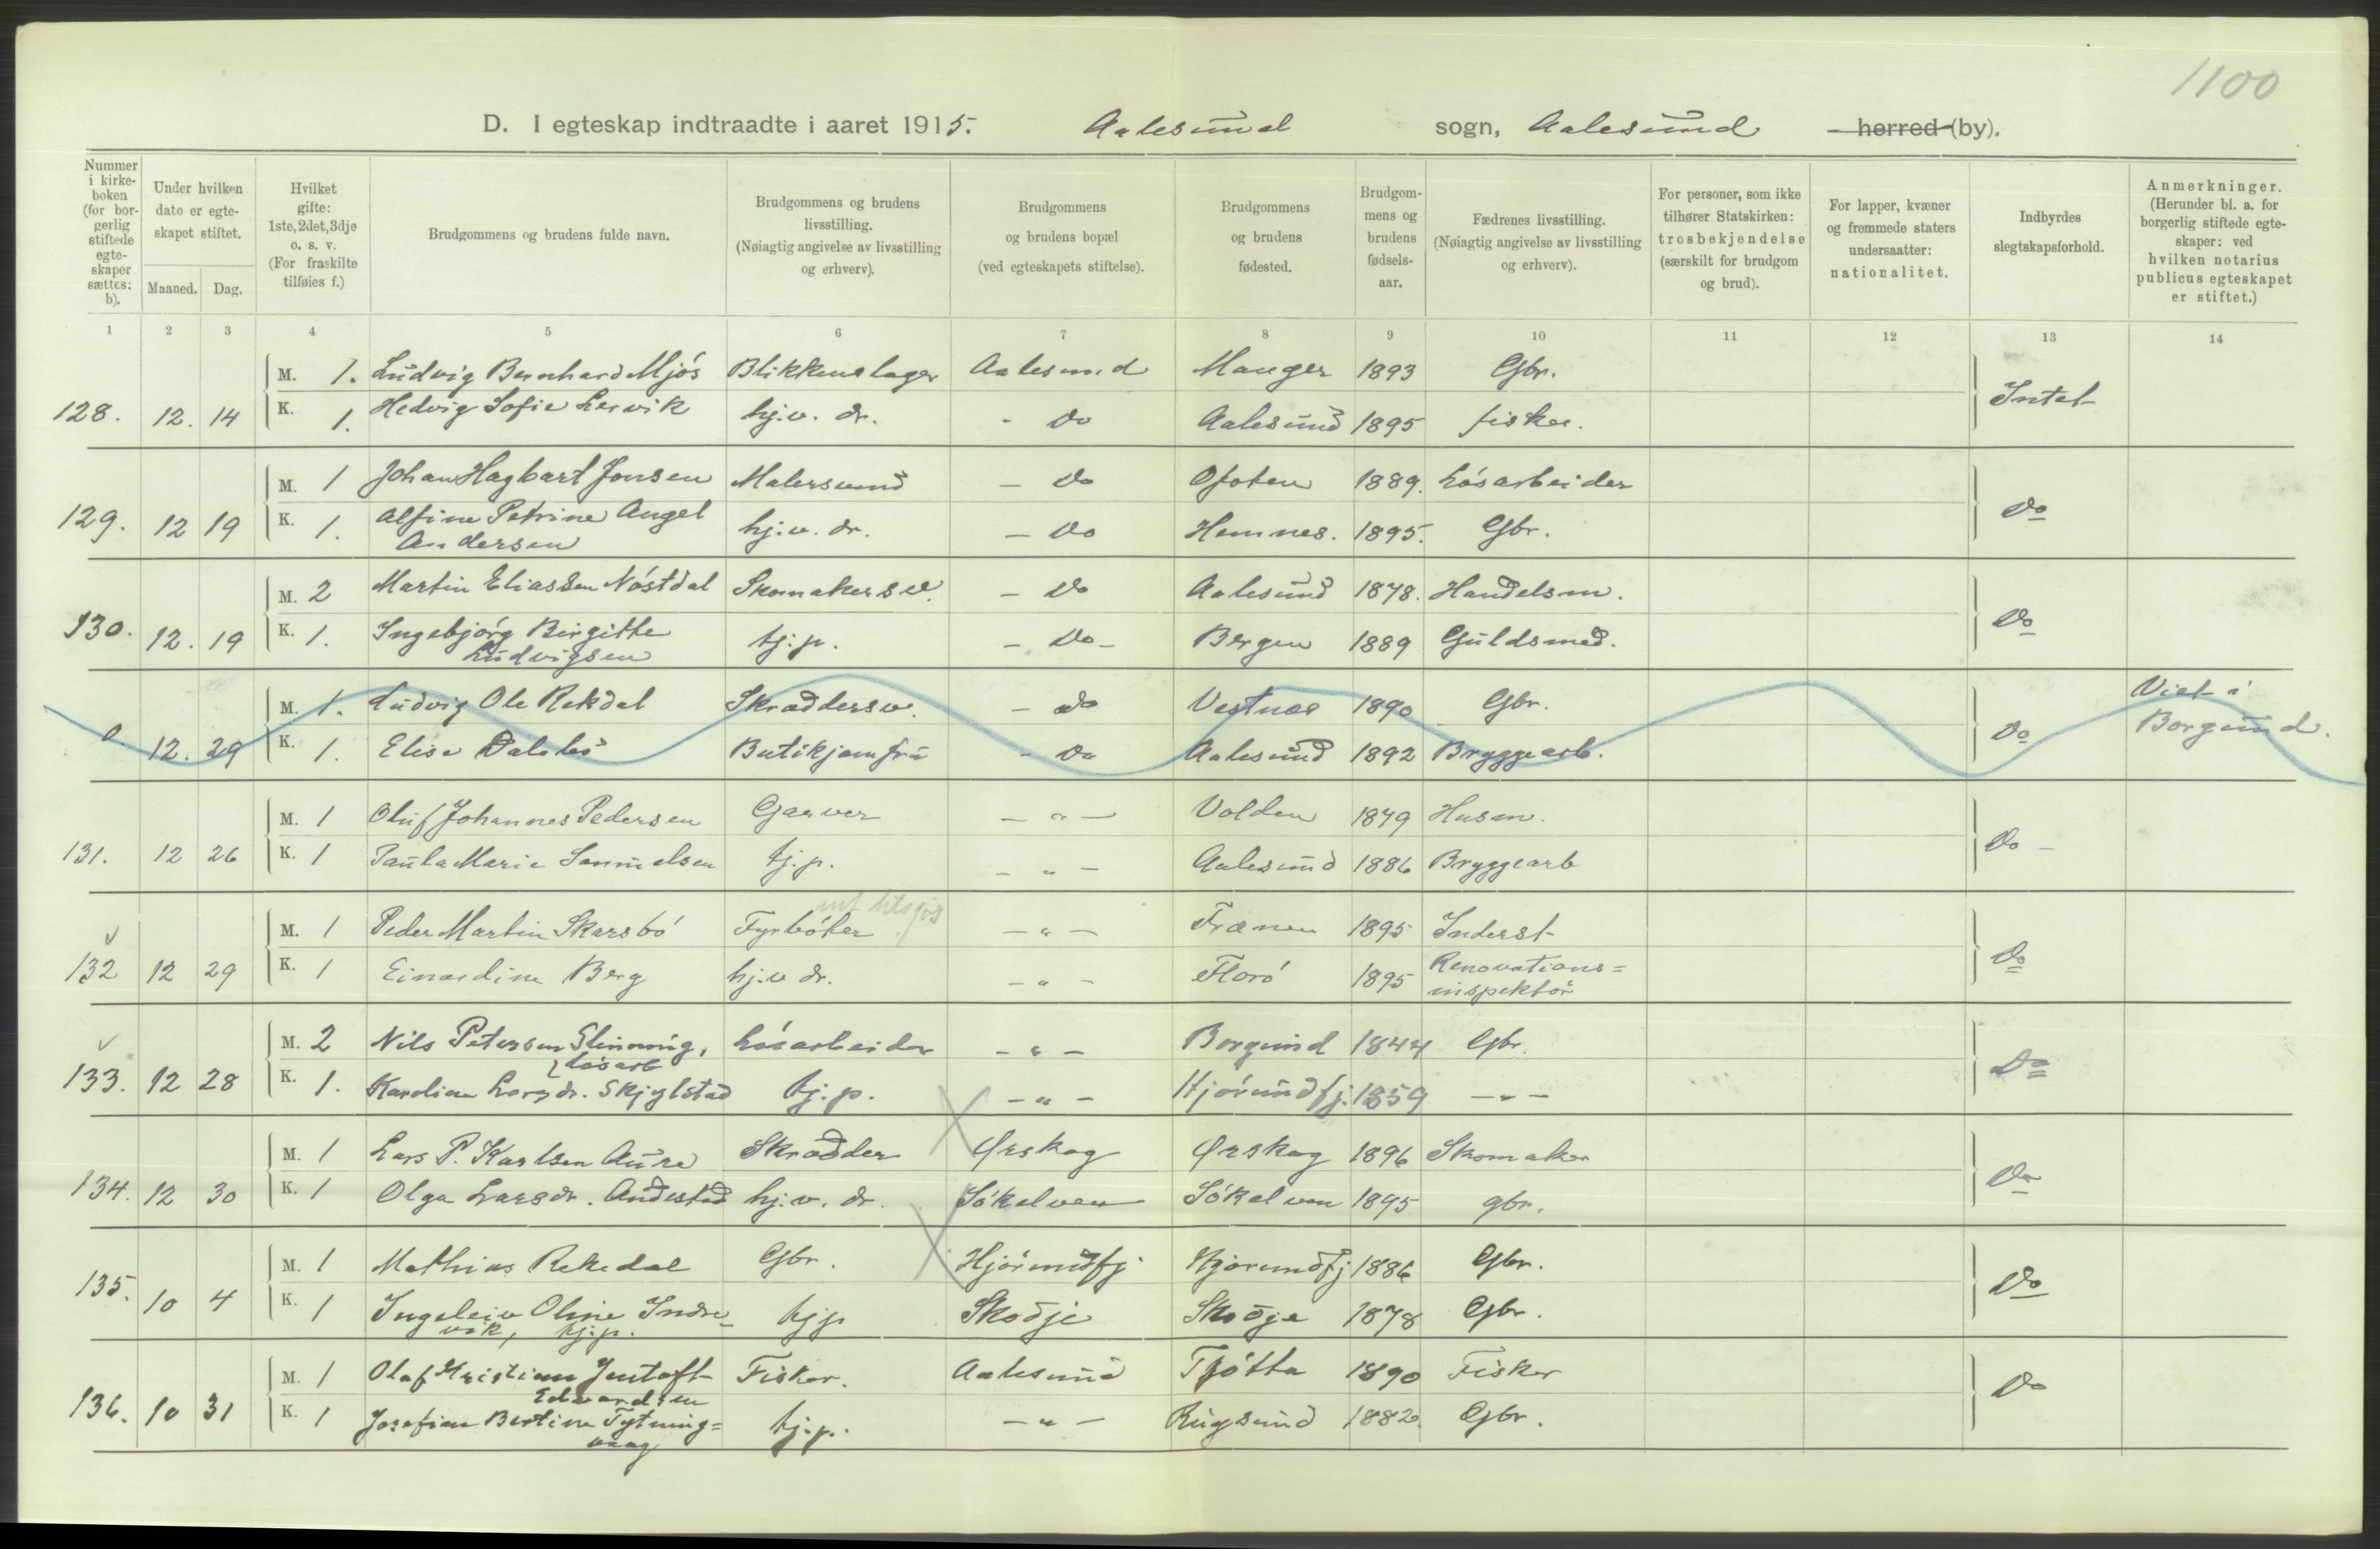 1100
D. I egteskap indtraadte i aaret 1915. Aalesund sogn, Aalesund herred (by).
Nummer i kirke-boken (for bor-gerlig stiftede egte-skaper sættes: b).
Under hvilken dato er egte-skapet stiftet.
Maaned. Dag.
Hvilket gifte: 1ste, 2det, 3dje o. s. v. (For fraskilte tilføies f.)
Brudgommens og brudens fulde navn.
Brudgommens og brudens livsstilling. (Nøiagtig angivelse av livsstilling og erhverv).
Brudgommens og brudens bopæl (ved egteskapets stiftelse).
Brudgommens og brudens fødested.
Brudgom-mens og brudens fødsels-aar.
Fædrenes livsstilling. (Nøiagtig angivelse av livsstilling og erhverv).
For personer, som ikke tilhører Statskirken: trosbekjendelse (særskilt for brudgom og brud).
For lapper, kvæner og fremmede staters undersaatter: nationalitet.
Indbyrdes slegtskapsforhold.
Anmerkninger. (Herunder bl. a. for borgerlig stiftede egte-skaper: ved hvilken notarius publicus egteskapet er stiftet.)
1 2 3 4 5 6 7 8 9 10 11 12 13 14
M. 1. Ludvig Bernhard Mjós Blikkenslager Aalesund Manger 1893 Gbr.
128. 12. 14 K. 1. Hedvig Sofie Lervik hj.v. dr. - Do Aalesund 1895 fisker. Intet
M. 1 Johan Hagbart Jonsen Malersvend - Do Ofoten 1889. Lósarbeider
129. 12 19 K. 1. Alfine Petrine Angel hj.v. dr. - Do Hemnes. 1895. Gbr. Do
Andersen
M. 2 Martin Eliassen Nóstdal Skomakersv. - Do Aalesund 1878. Handelsm.
130. 12. 19 K. 1. Ingebjórg Birgitte tj.p. - Do - Bergen 1889 Guldsmed. Do
Ludvigsen
M. 1. Ludvig Ole Rekdal Skræddersv. - Do Vestnes 1890 Gbr. Viet i
0 12. 29 K. 1. Elise Dalsbó Butikjomfru - Do Aalesund 1892 Bryggearb. Do Borgund.
M. 1 Oluf Johannes Pedersen Garver - " - Volden 1879 Husm.
131. 12 26 K. 1 Paula Marie Samuelsen tj.p. - " - Aalesund 1886 Bryggearb Do -
M. 1 Peder Martin Skarsbó Fyrbóter - " - Frænen 1895 Inderst
132 12 29 K. 1 Einardine Berg hj.v dr. - " - Floró 1895 Renovations= Do
inspektór
M. 2 Nils Petersen Slinning, Lósarbeider - " - Borgund 1844 Gbr.
lósarb
133. 12 28 K. 1. Karoline Larsdr. Skjylstad tj.p. - " - Hjórundfj. 1859 - " - Do
M. 1 Lars P. Karlsen Aure Skrædder Ørskog Ørskog 1896 Skomaker
134. 12 30 K. 1 Olga Larsdr. Andestad hj.v. dr. Sókelven Sókelven 1895 gbr. Do
M. 1 Mathias Rekedal Gbr. Hjórundfj Hjórundfj 1886 Gbr.
135. 10 4 K. 1 Ingeleiv Oline Indre- tjp Skodje Skodje 1878 Gbr. Do
vik, tj.p.
M. 1 Olaf Kristian Jentoft Fisker. Aalesund Tjótta 1890 Fisker
Edvardsen
136. 10 31 K. 1 Josefine Bertine Tytning= tj.p. - " - Rugsund 1882. Gbr. Do
vaag